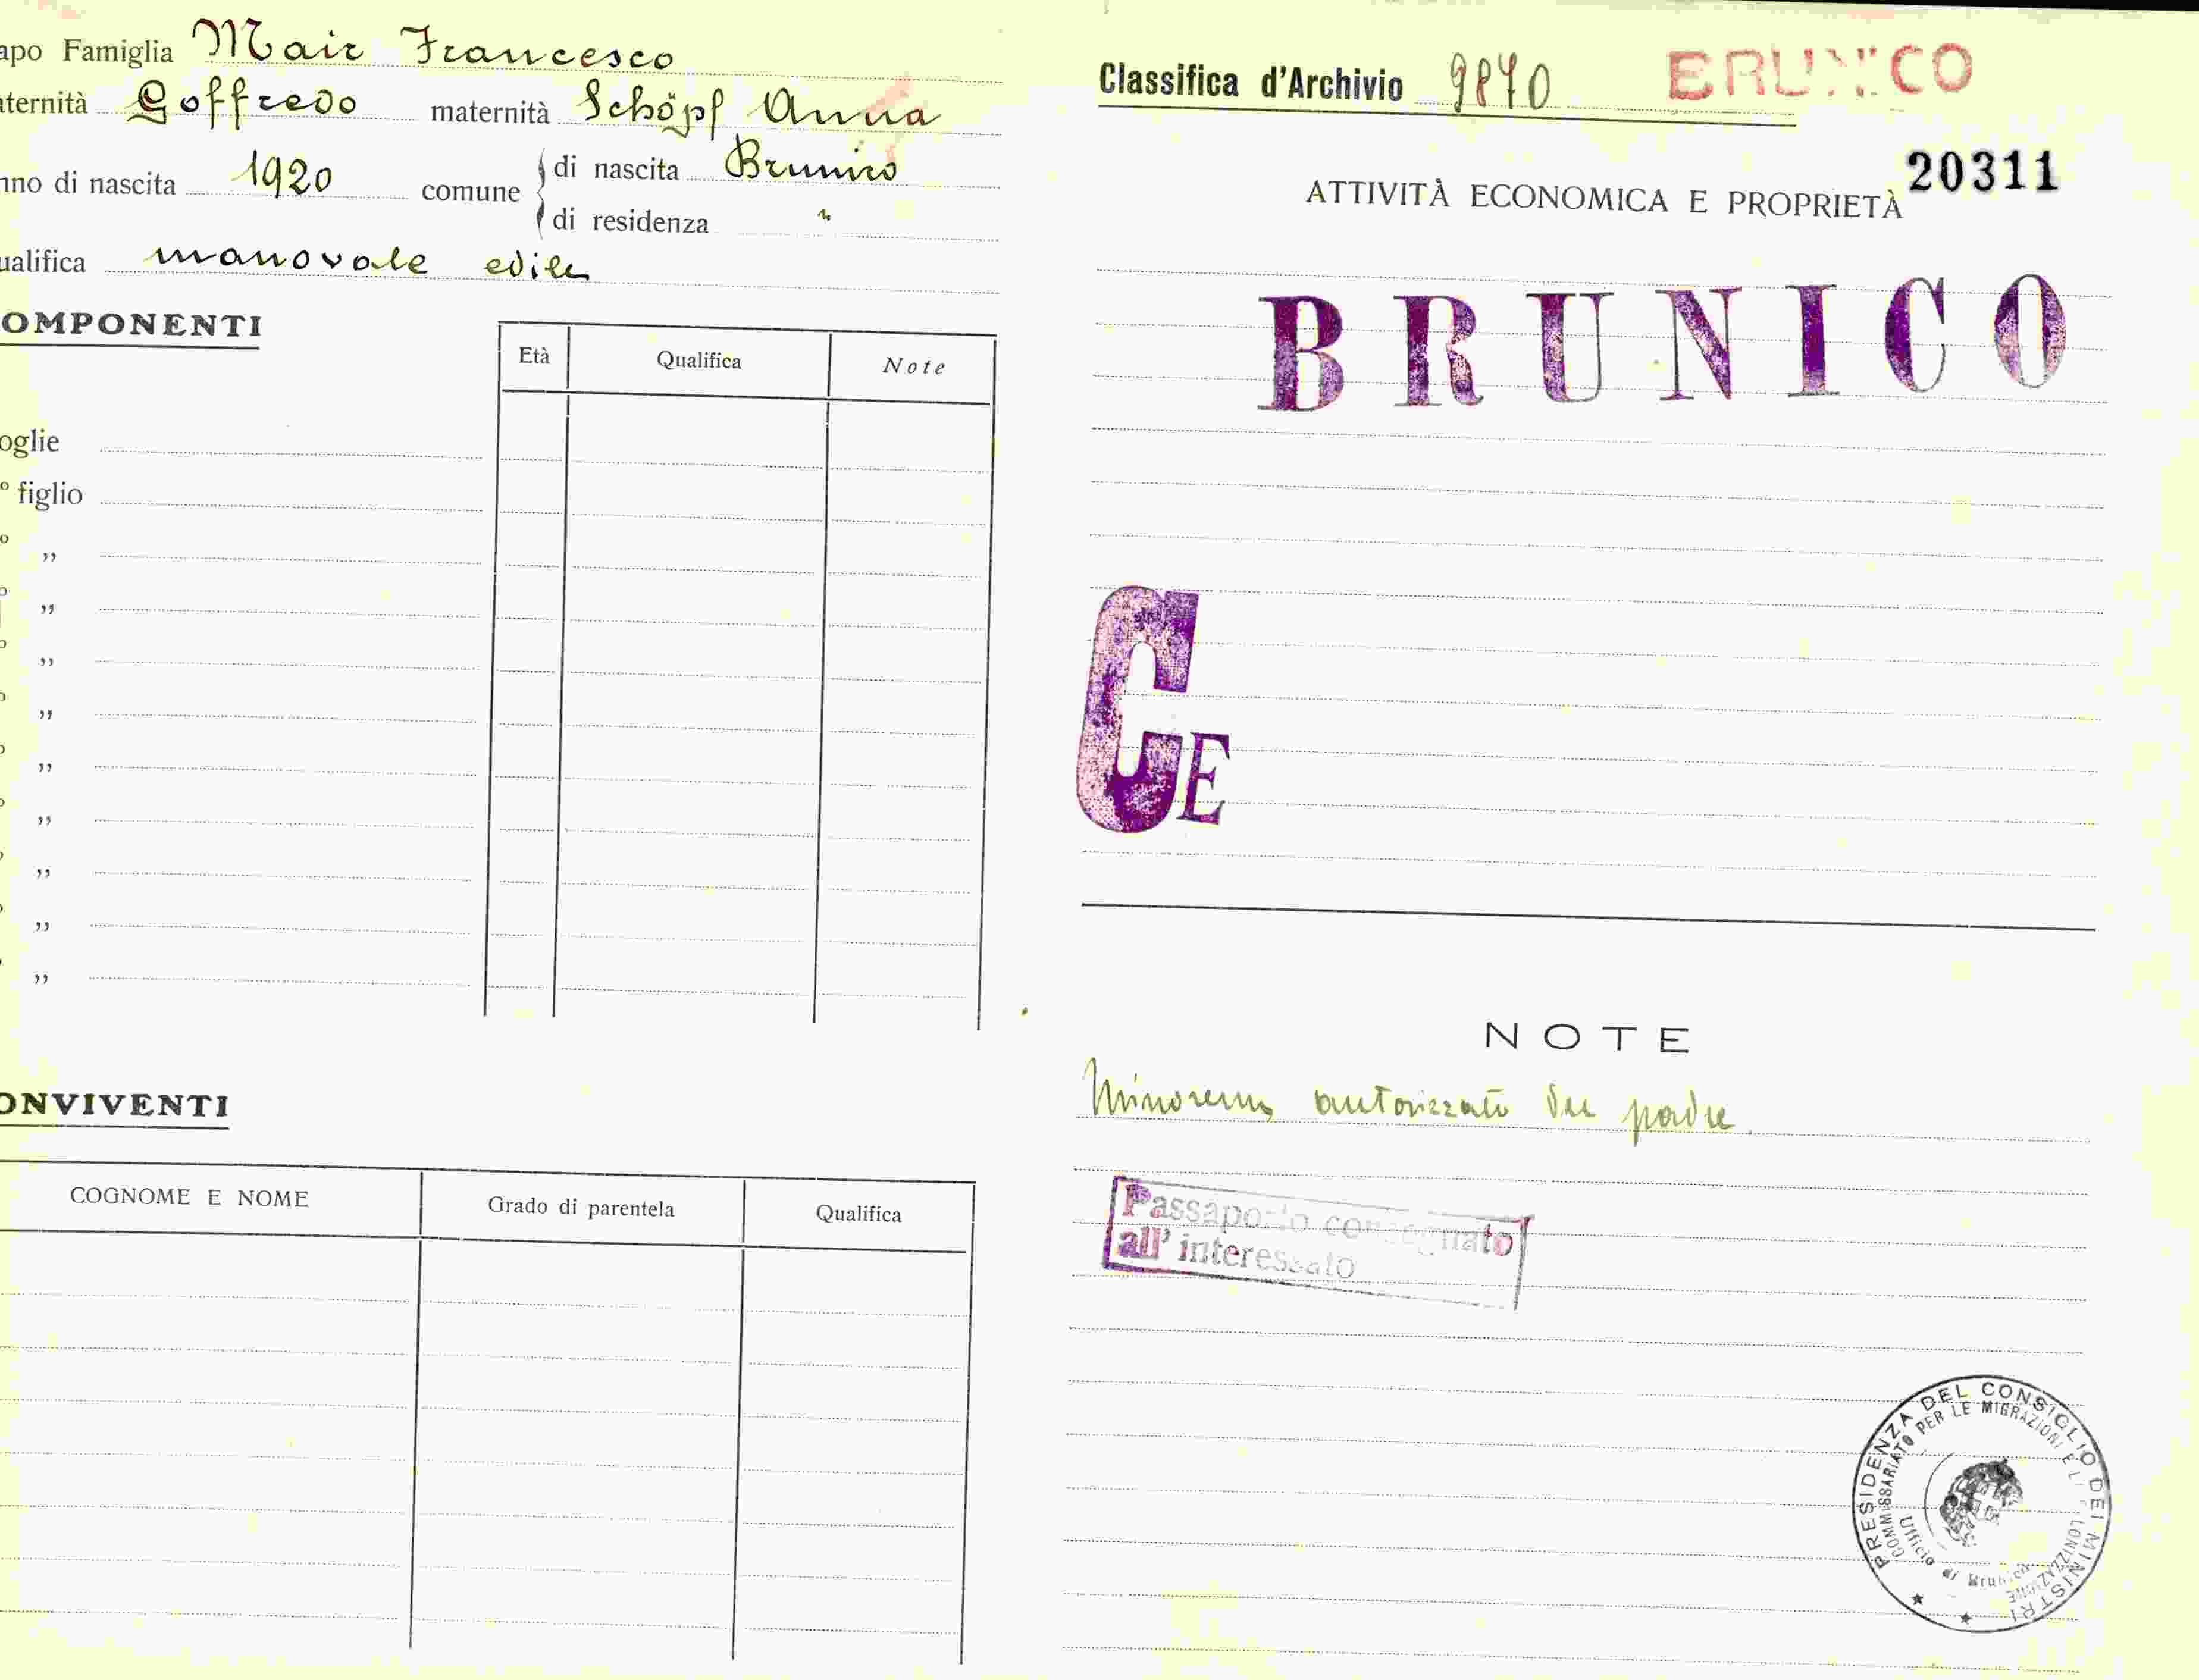 apo Famiglia Mair Francesco
aternità Goffredo maternità Schöpf Anna
nno di nascita 1920 comune di nascita Brunico
di residenza "
ualifica manovale edile
OMPONENTI
Età Qualifica Note
oglie
° figlio
° "
° "
° "
° "
° "
° "
° "
° "
° "
ONVIVENTI
COGNOME E NOME Grado di parentela Qualifica
Classifica d'Archivio 9870 BRUNICO
20311
ATTIVITÀ ECONOMICA E PROPRIETÀ
BRUNICO
CE
NOTE
Minorenne autorizzato dal padre.
Passaporto consegnato
all' interessato
PRESIDENZA DEL CONSIGLIO DEI MINISTRI
COMMISSARIATO PER LE MIGRAZIONI E LA COLONIZZAZIONE
Ufficio di Brunico